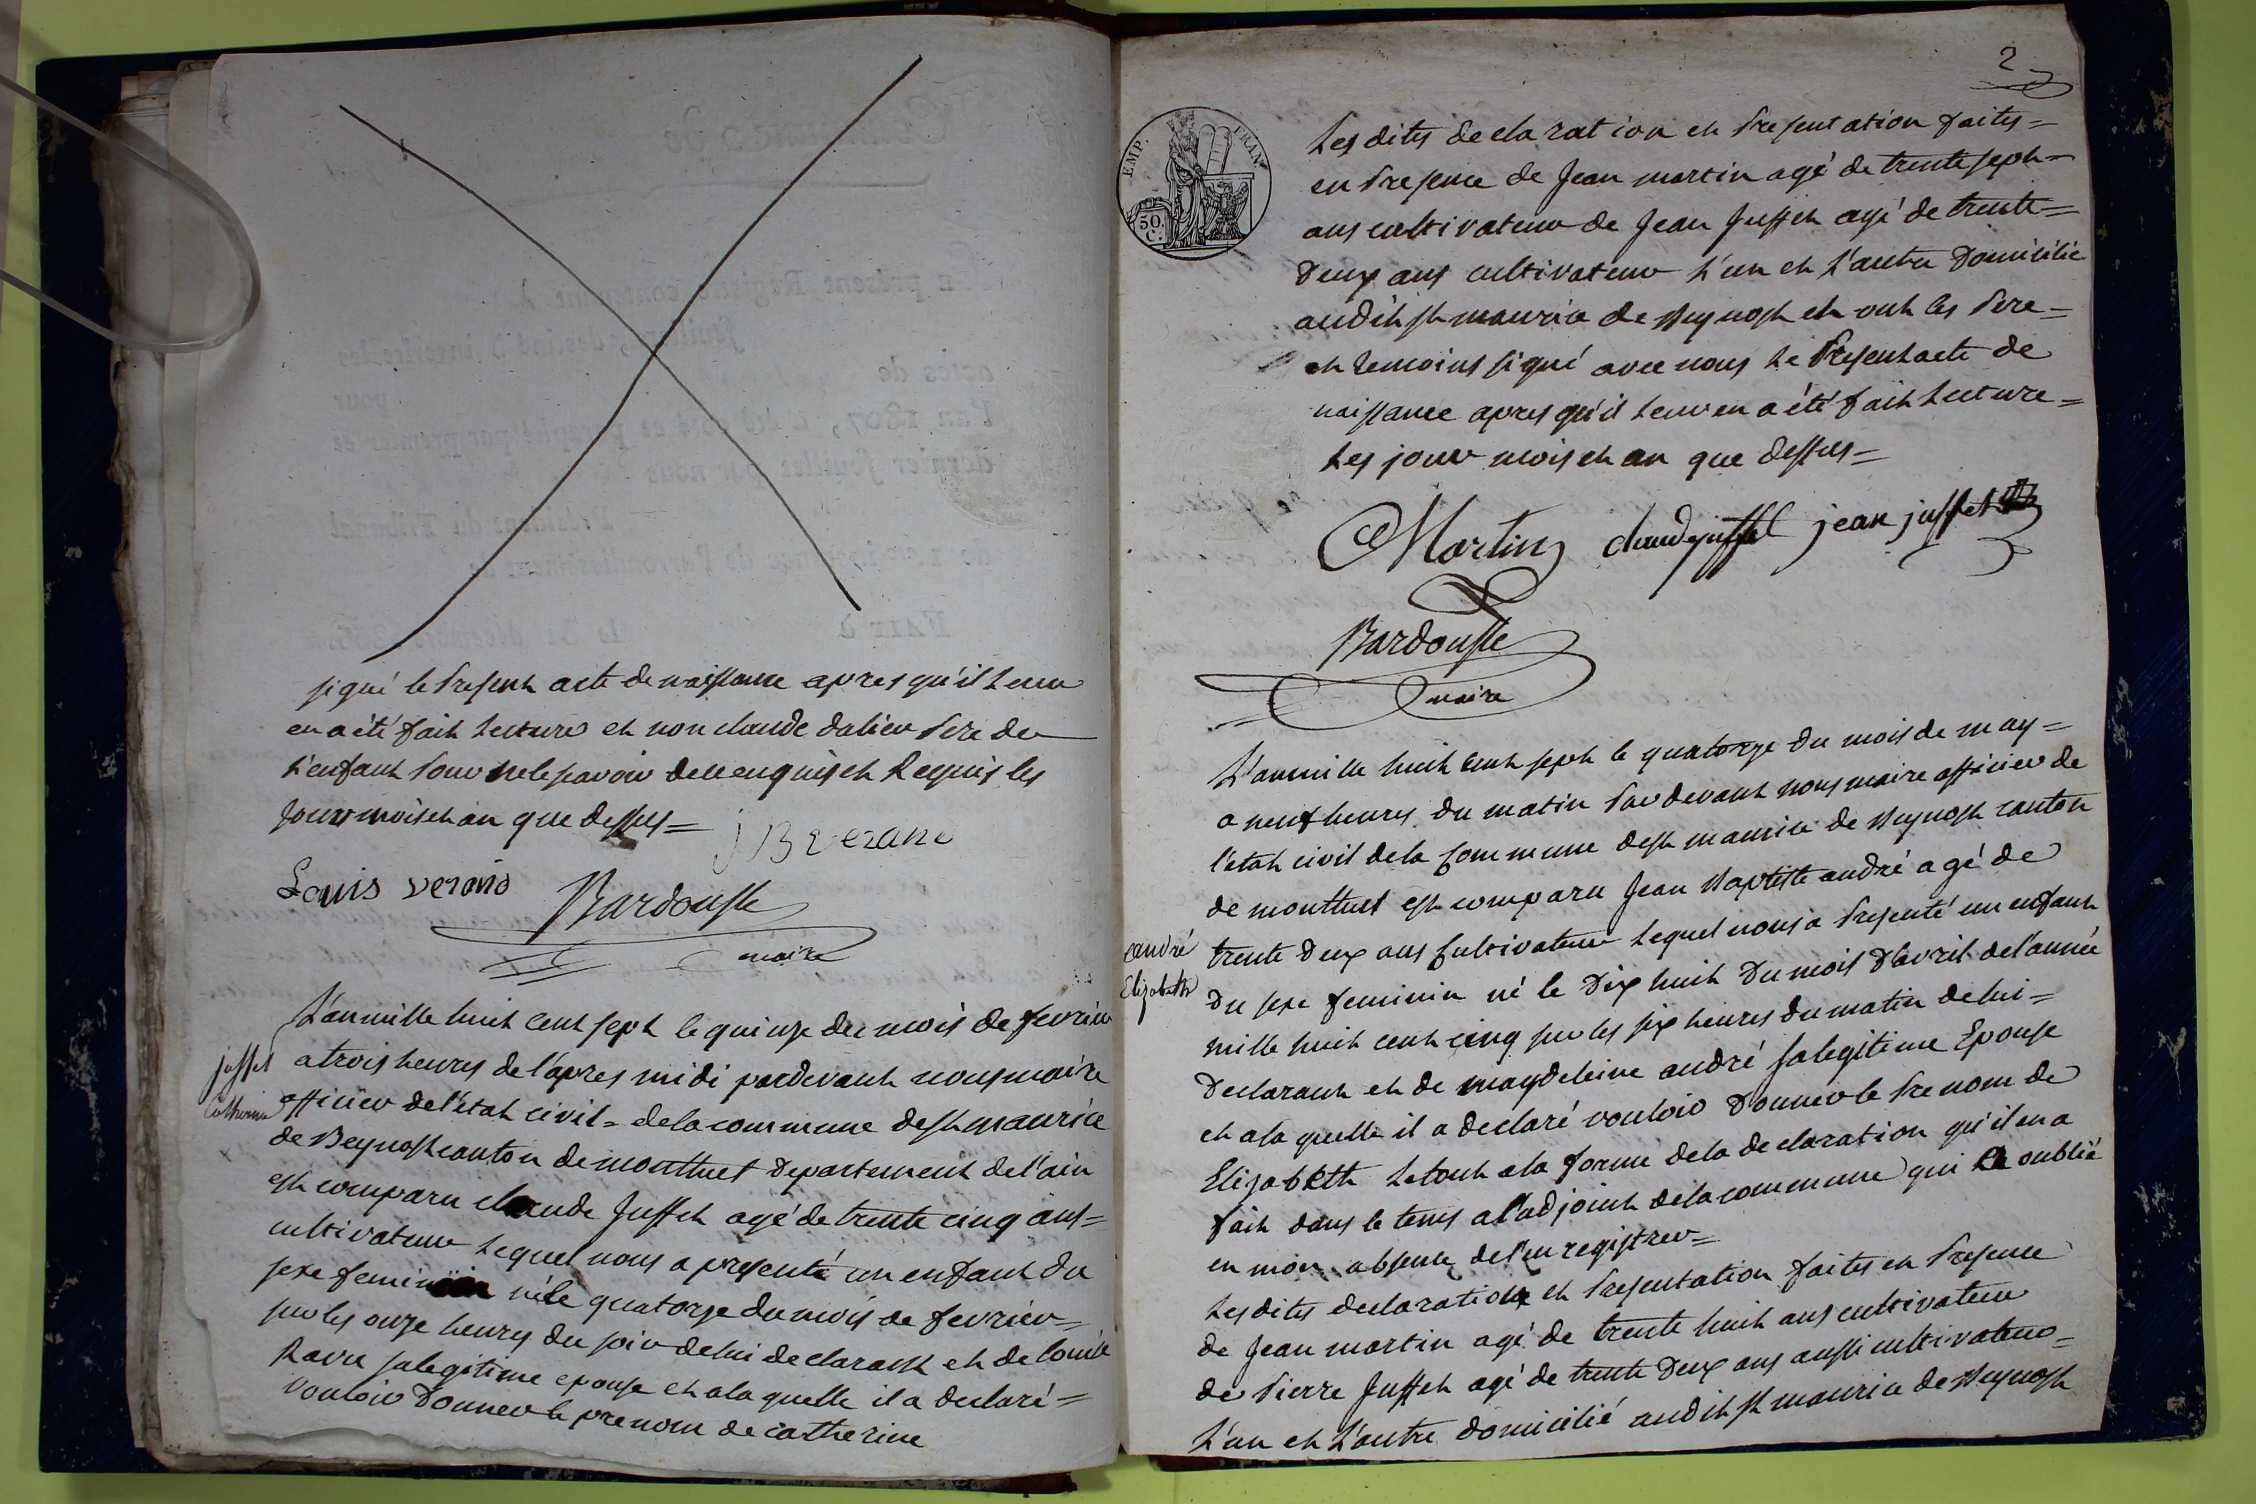 signé le present acte de naissance apres qu'il leur
en a été fait lecture et non claude dalieu Pere de
l'enfant pour ne le savoir de ce enquis et Requis les
Jour mois et an que dessus =
J B verano
Louis verano
Bardousse
maire
L'an mille huit cent sept le quinze du mois de fevrier
jusset
a trois heures de l'apres midi pardevant nous maire
Catherine
officier de l'etat civil = de la commune de st maurice
de Beynost canton de montluel Departement de l'ain
est comparu claude Jusset agé de trente cinq ans =
cultivateur Lequel nous a presenté un enfant du
sexe feminin né le quatorze du mois de fevrier =
sur les onze heures du soir de lui declarant et de Louise
Ravu sa legitime epouse et a la quelle il a declaré =
vouloir Donner le prenom de catherine
2
Les dites declaration et Presentation faites =
en Presence de Jean martin agé de trente sept =
ans cultivateur de Jean Jusset agé de trente =
Deux ans cultivateur L'un et L'autre Domicilié
audit st maurice de Beynost et ont les Pere =
et temoins signé avec nous Le Present acte de
naissance apres qu'il Leur en a été fait Lecture =
Les jour mois et an que dessus =
EMP. FRAN.
50 C.
Martin claude jusset jean jusset
Bardousse
maire
L'an mille huit cent sept le quatorze Du mois de may =
a neuf heures du matin Par devant nous maire officier de
l'etat civil de la Commune de st maurice de Beynost canton
de montluel est comparu Jean Baptiste andré agé de
andré
trente Deux ans Cultivateur Lequel nous a Presenté un enfant
Elizabeth
Du sexe feminin né le Dix huit Du mois D'avril de l'année
mille huit cent cinq sur les six heures du matin de lui =
Declarant et de magdeleine andré sa legitime Epouse
et a la quelle il a declaré vouloir Donner le Prenom de
Elizabeth Le tout a la forme de la declaration qu'il en a
fait dans le tems a l'adjoint de la commune qui a oublié
en mon absence de l'enregistrer =
Les dites declaration et Presentation faites en Presence
de Jean martin agé de trente huit ans cultivateur
de Pierre Jusset agé de trente Deux ans aussi cultivateur =
L'un et L'autre domicilié audit st maurice de Beynost